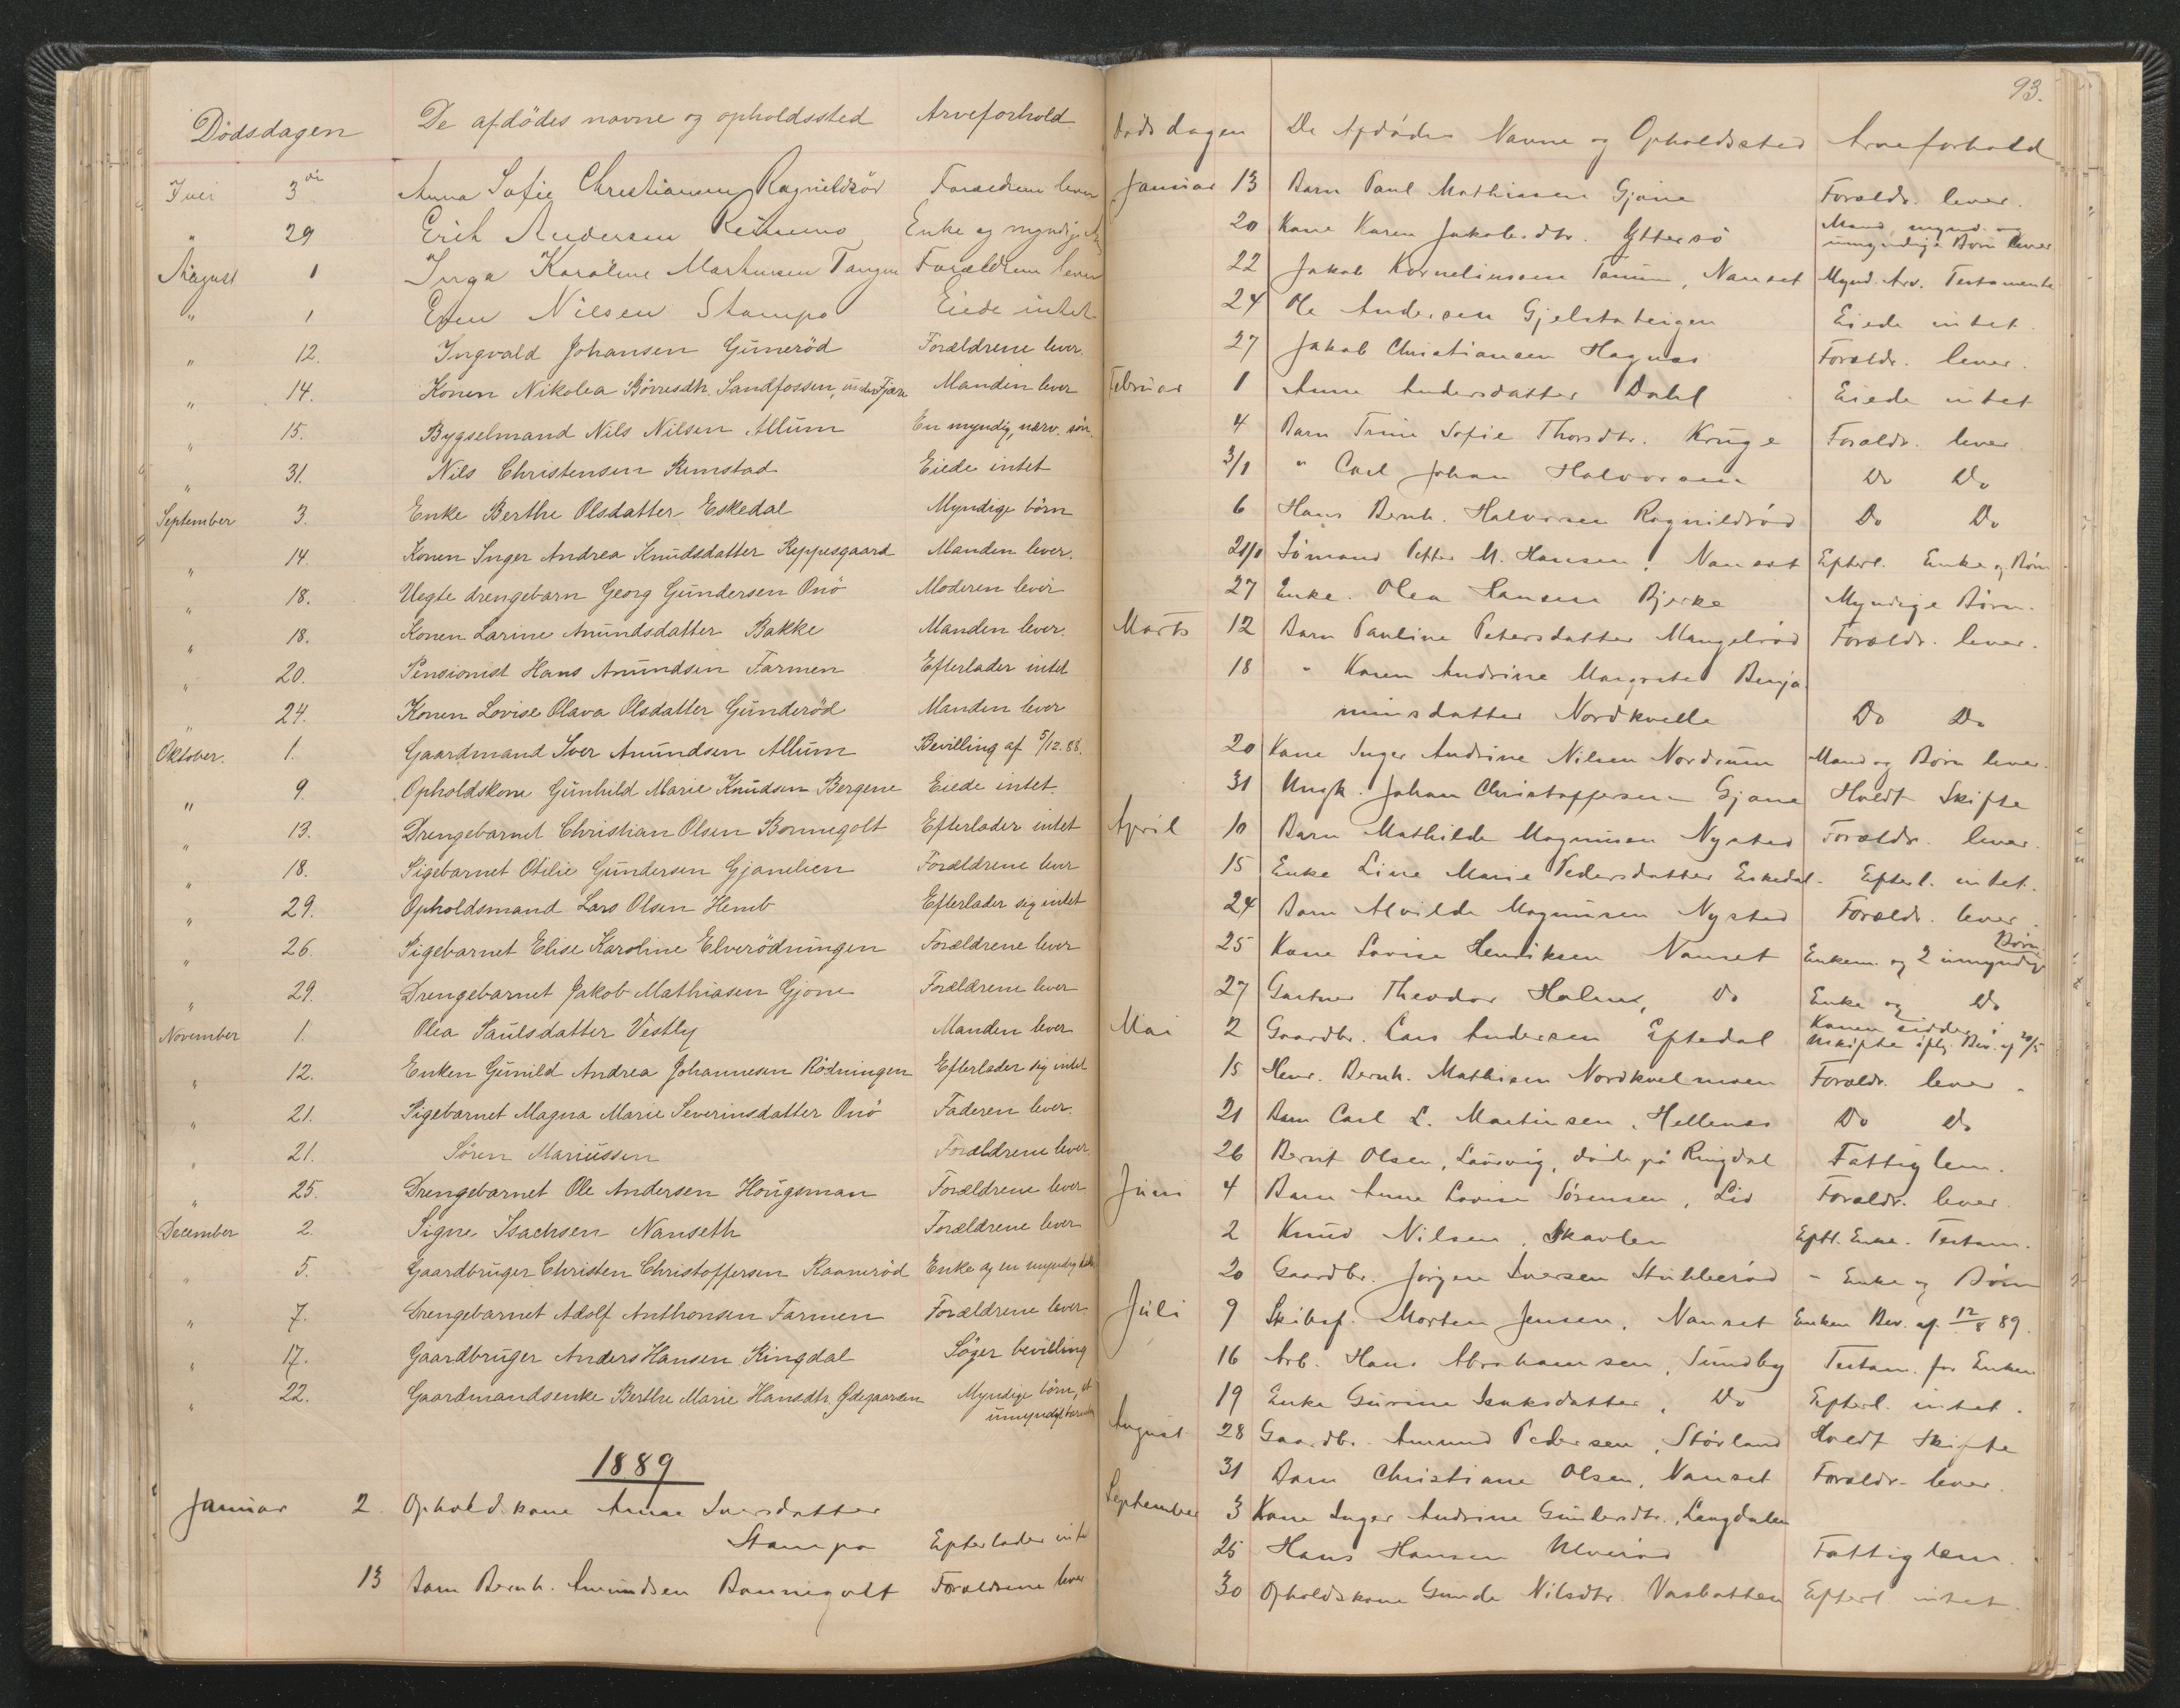 Dödsdagen De afdödes navne og opholdssted Arveforhold
Juli 3die Anna Sofie Christiansen Ragnildröd Forældrene lever
" 29 Erik Andersen Enke og myndige
August 1 Inga Karoline Martinsen Tangen Forældrene lever
" 1 Even Nilsen Stampa Eiede intet
" 12. Ingvald Johansen Gunneröd Forældrene lever.
" 14. Konen Nikolea Börresdtr. Sandfossen, under Fjære Manden lever
" 15. Bygselmand Nils Nilsen Allum En myndig, nærv. sön.
" 31. Nils Christensen Rimstad Eiede intet
September 3. Enke Berthe Olsdatter Eskedal Myndige börn
" 14. Konen Inger Andrea Knudsdatter Reppesgaard Manden lever.
" 18. Uegte drengebarn Georg Gundersen Onö Moderen lever
" 18. Konen Larine Anundsdatter Bakke Manden lever.
" 20. Pensionist Hans Anundsen Farmen Efterlader intet
" 24. Konen Lovise Olava Olsdatter Gunderöd Manden lever
Oktober. 1. Gaardmand Iver Anundsen Allum Bevilling af 5/12.88.
" 9. Opholdskone Gunhild Marie Knudsen Bergene Eiede intet.
" 13. Drengebarnet Christian Olsen Bonnegolt Efterlader intet
" 18. Pigebarnet Otilie Gundersen Gjonelien Forældrene lever
" 29. Opholdsmand Lars Olsen Hemb Efterlader sig intet
" 26. Pigebarnet Elise Karoline Elverödningen Forældrene lever
" 29. Drengebarnet Jakob Mathiasen Gjone Forældrene lever
November 1. Olea Paulsdatter Vestby Manden lever
" 12. Enken Gunild Andrea Johannesen Rödningen Efterlader sig intet
" 21. Pigebarnet Magna Marie Severinsdatter Onö Faderen lever.
" 21. Sören Mariussen Forældrene lever.
" 25. Drengebarnet Ole Andersen Hougsman Forældrene lever
December 2. Signe Isachsen Nanseth Forældrene lever
" 5. Gaardbruger Christen Christoffersen Kaaneröd Enke og en myndig
" 7. Drengebarnet Adolf Anthonsen Farmen Forældrene lever.
" 17. Gaardbruger Anders Hansen Ringdal Söger bevilling
" 22. Gaardmandsenke Berthe Marie Hansdtr. Ödegaarden Myndige börn, et
umyndigt
1889
Januar 2. Opholdskone Anne Iversdatter
Stampa Efterlader intet
13 Barn Bernh. Amundsen Bonnegolt Forældrene lever
93.
Dödsdagen De Afdödes Navne og Opholdssted Arveforhold
Januar 13 Barn Paul Mathissen Gjone Forældr. lever.
20 Kone Karen Jakobsdtr. Yttersö Mand, mynd. og
umyndige Börn lever
22 Jakob Korneliussen Tanum, Nanset Mynd. Arv. Testamente
24 Ole Andersen Gjelstateigen Eiede intet.
27 Jakob Christiansen Hagnæs Forældr. lever.
Februar 1 Anne Andersdatter Dahl Eiede intet
4 Barn Trine Sofie Thorsdtr. Kruge Forældr. lever
3/1 " Carl Johan Halvorsen Do Do
6 Hans Bernh. Halvorsen Ragnildröd Do Do
20/1 Sömand Petter M. Hansen, Nanset Efterl. Enke og Börn
27 Enke. Olea Hansen Bjerke Myndige Börn.
Marts 12 Barn Pauline Petersdatter Mangelröd Forældr. lever.
18 " Karen Andrine Margrete Benja-
minsdatter Nordkvelle Do Do
20 Kone Inger Andrine Nilsen Nordrum Mand og Börn lever.
31 Ungk. Johan Christoffersen Gjone Holdt Skifte
April 10 Barn Mathilde Magnusen Nysted Forældr. lever.
15 Enke Line Marie Pedersdatter Eskedal. Efterl. intet.
24 Barn Alvilde Magnusen Nysted Forældr. lever.
25 Kone Lovise Henriksen Nanset Enkem. og 2 umyndige Börn
27 Gartner Theodor Holm, Do Enke og Do
Mai 2 Gaardbr. Lars Andersen Eftedal Konen sidder i
uskifte iflg. Bev. af 20/5
15 Henr. Bernh. Mathisen Nordkvelmoen Forældr. lever.
21 Barn Carl L. Martinsen, Hellenes Do Do
26 Bernt Olsen, Laurvig, döde på Ringdal Fattiglem.
Juni 4 Barn Anne Lovise Sörensen, Lid Forældr. lever.
2 Knud Nilsen, Skavlen Eftl. Enke. Testam.
20 Gaardbr. Jörgen Iversen Stubberöd - Enke og Börn
Juli 9 Skibsf. Morten Jensen, Nanset Enken Bev. af 12/8 89.
16 Arb. Hans Abrahamsen, Sundby Testam. for Enken
19 Enke Gurine Isaksdatter, Do Efterl. intet.
August 28 Gaardbr. Amund Pedersen, Störland Holdt Skifte
31 Barn Christiane Olsen, Nanset Forældr. lever.
September 3 Kone Inger Andrine Gundersdtr., Langdalen
25 Hans Hansen Ulveröd Fattiglem.
30 Opholdskone Gunda Nilsdtr. Vasbotten Efterl. intet.